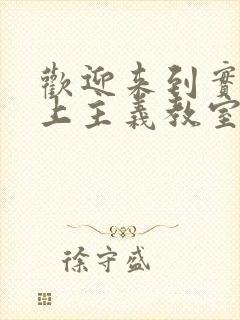 歡迎来到實
上主義教室
徐守盛